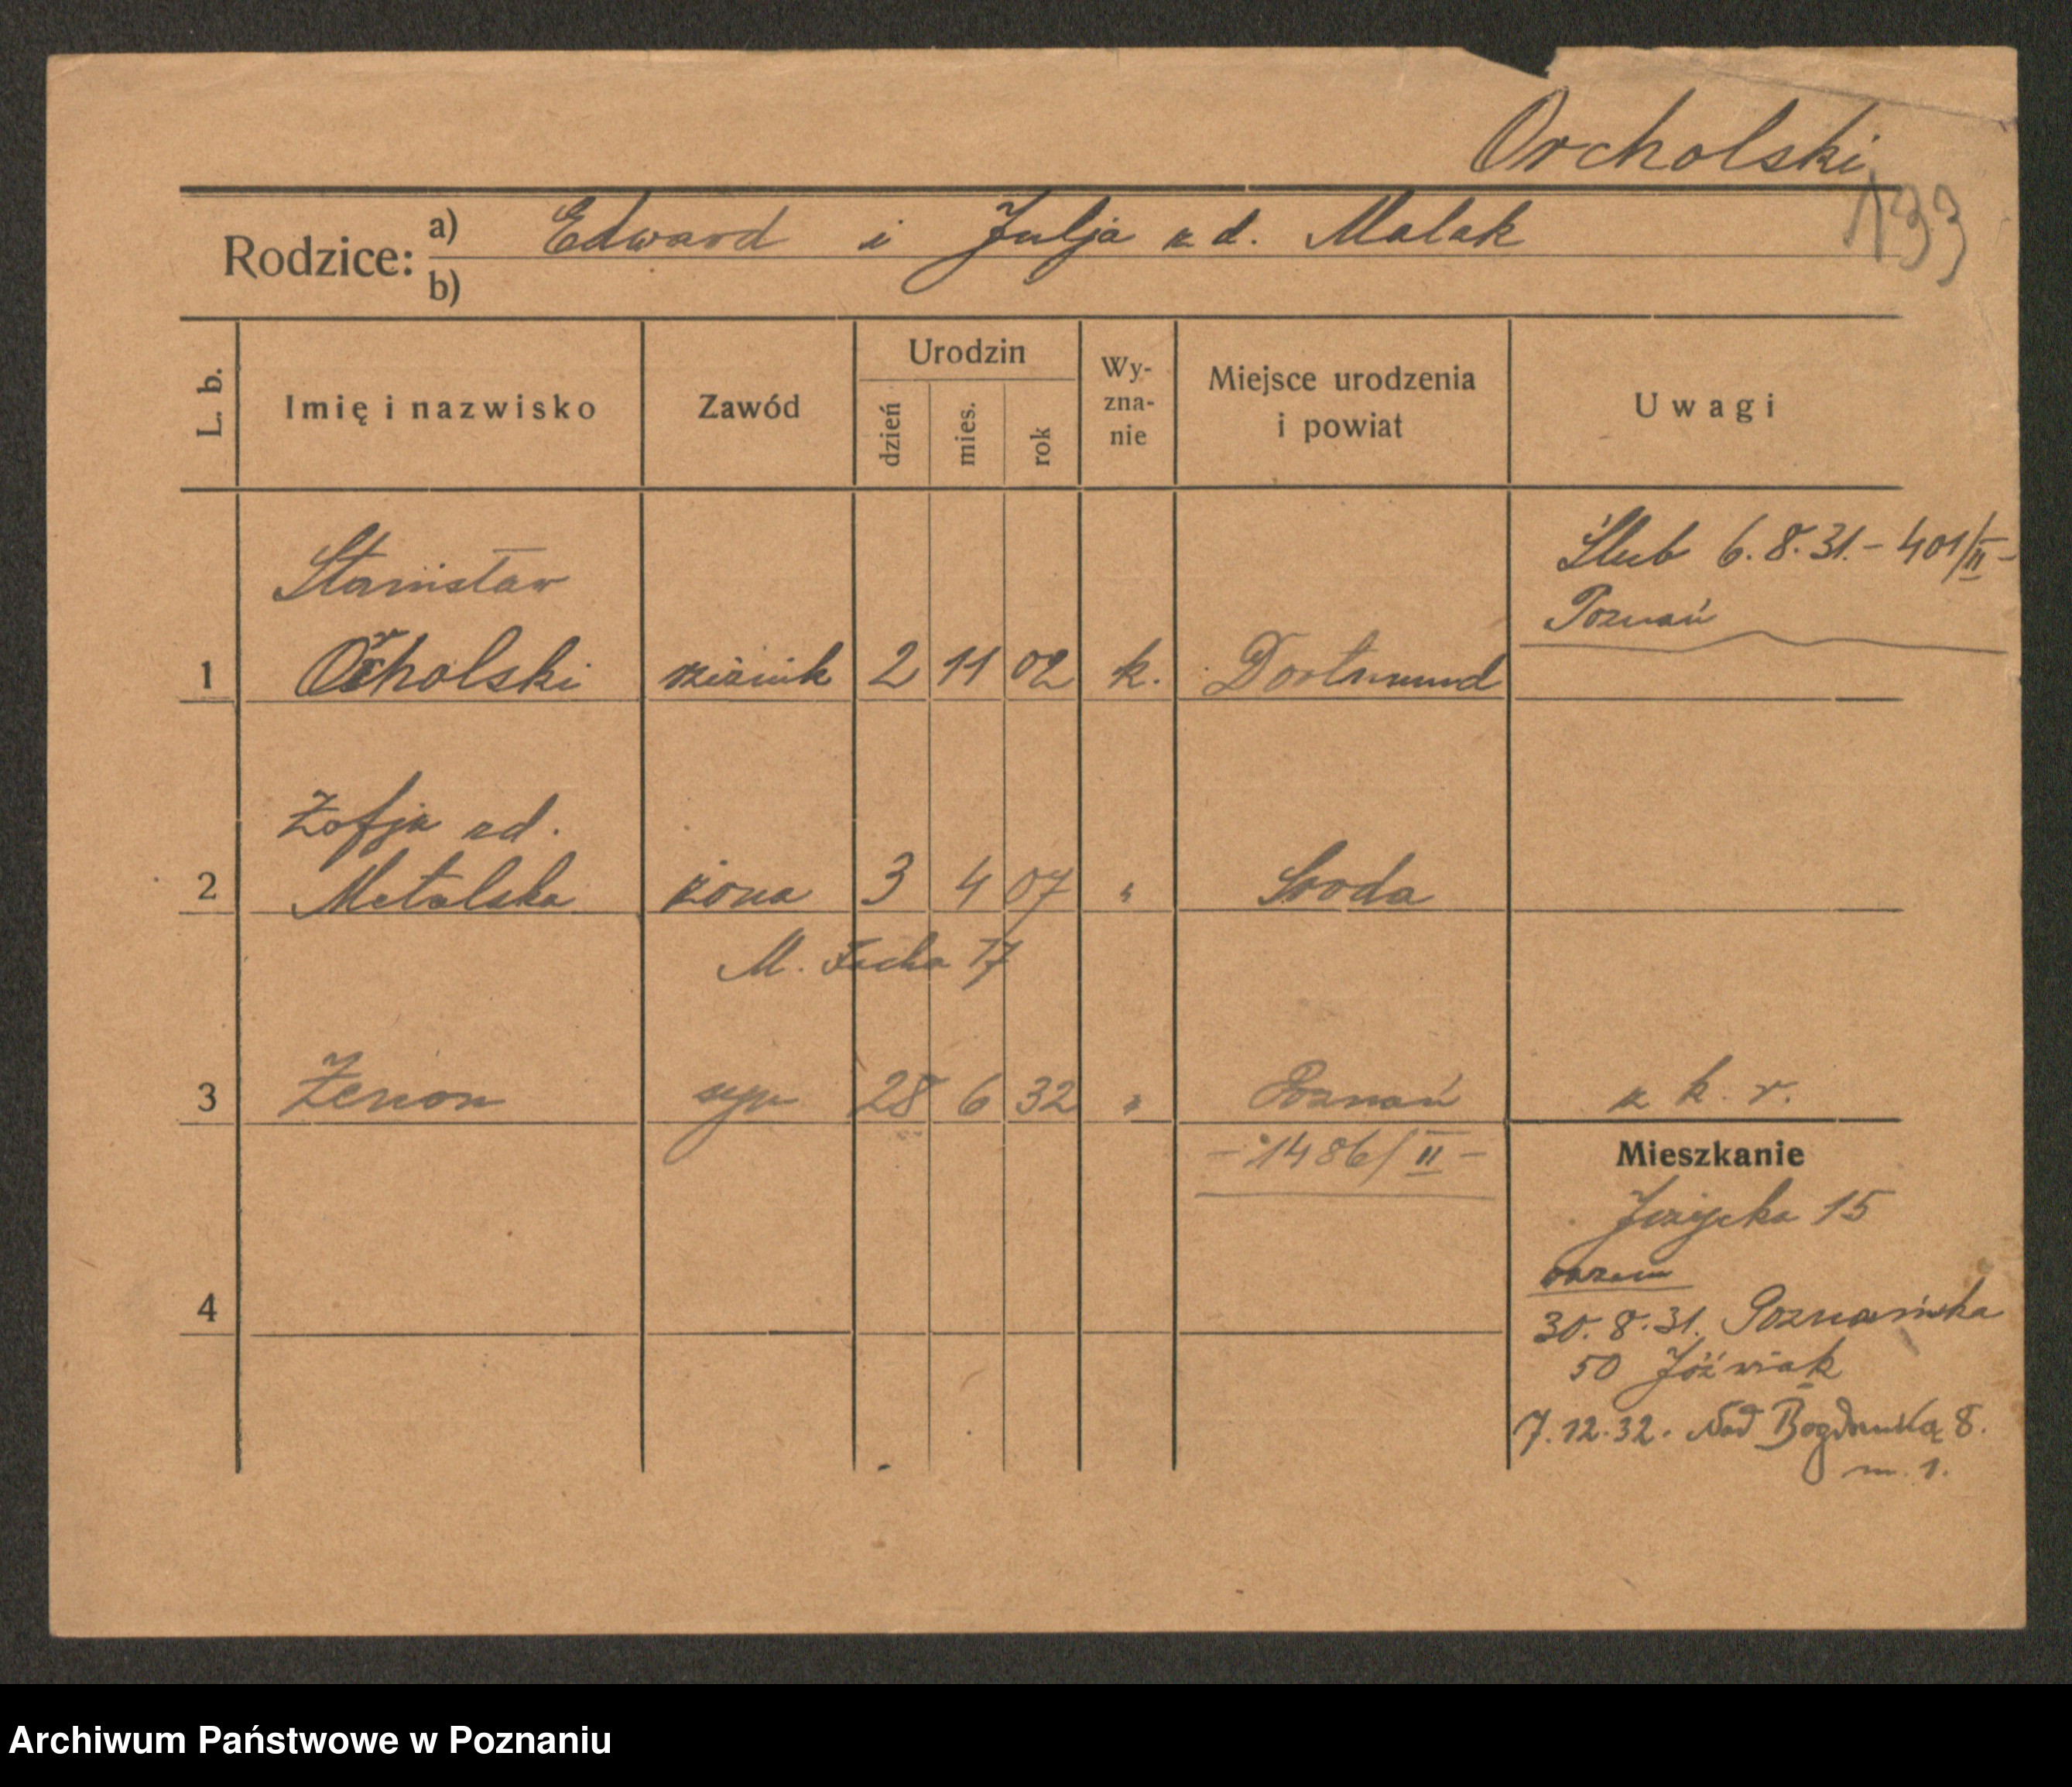 Orcholski
133
Rodzice: a) Edward i Julja zd. Malak
b)
L. b. Imię i nazwisko Zawód Urodzin dzień mies. rok Wy-zna-nie Miejsce urodzenia i powiat Uwagi
Ślub 6.8.31. – 401/II –
Poznań
Stanisław
1 Orcholski rzeźnik 2 11 02 k. Dortmund
Zofja zd.
2 Metalska żona 3 4 07 " Środa
M. Focha 17
3 Zenon syn 28 6 32 " Poznań z k. r.
– 1486/II –
Mieszkanie
Jeżycka 15
razem
30.8.31. Poznańska
50 Jóźwiak
4
7.12.32. Nad Bogdanką 8.
m. 1.
Archiwum Państwowe w Poznaniu